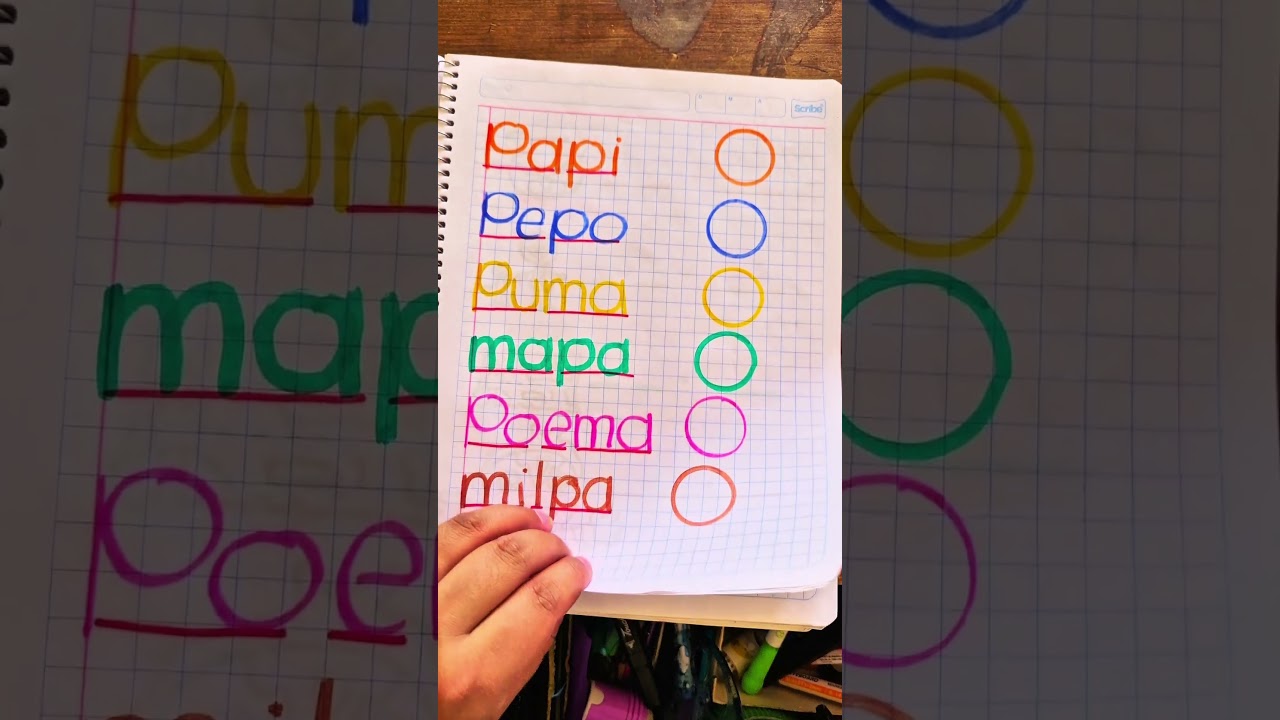 Scribe
Papi
Pepo
Puma
mapa
Poema
milpa